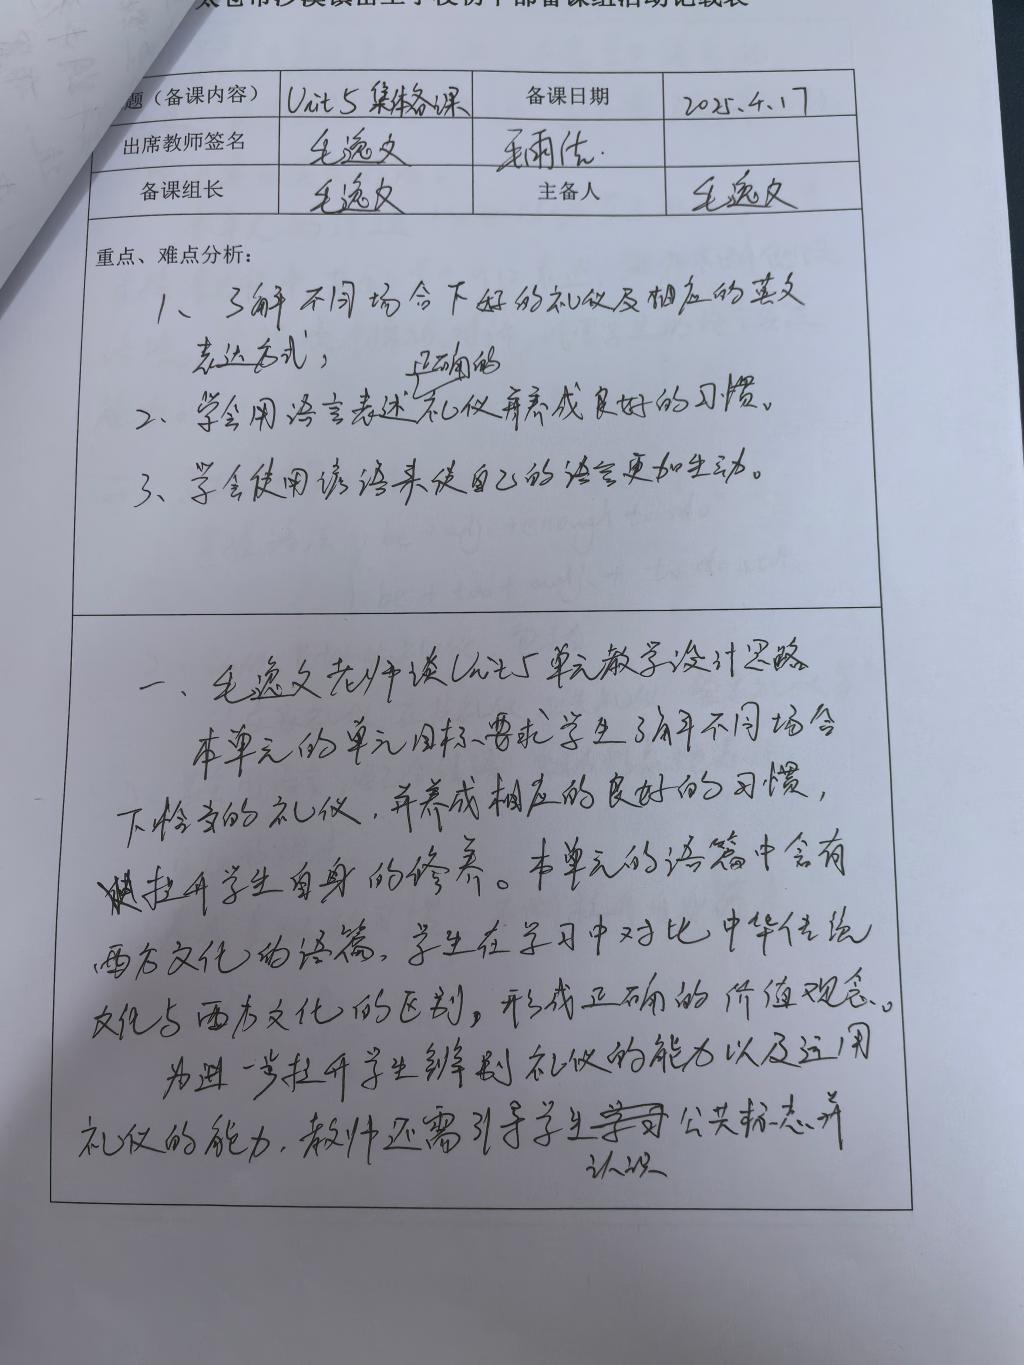 太仓市沙溪镇岳王学校初中部备课组活动记载表
题（备课内容） Unit 5 集体备课 备课日期 2025.4.17
出席教师签名 毛逸文 毛雨
备课组长 毛逸文 主备人 毛逸文
重点、难点分析：
1、了解不同场合下好的礼仪及相应的英文
表达方式；
正确的
2、学会用语言表述礼仪并养成良好的习惯。
3、学会使用谚语来使自己的语言更加生动。
一、毛逸文老师谈Unit 5 单元教学设计思路
本单元的单元目标、要求学生了解不同场合
下恰当的礼仪，并养成相应的良好的习惯，
提升学生自身的修养。本单元的语篇中含有
西方文化的语篇，学生在学习中对比中华传统
文化与西方文化的区别，形成正确的价值观念。
为进一步提升学生辨别礼仪的能力以及运用
礼仪的能力，教师还需引导学生学习公共标志并
认识